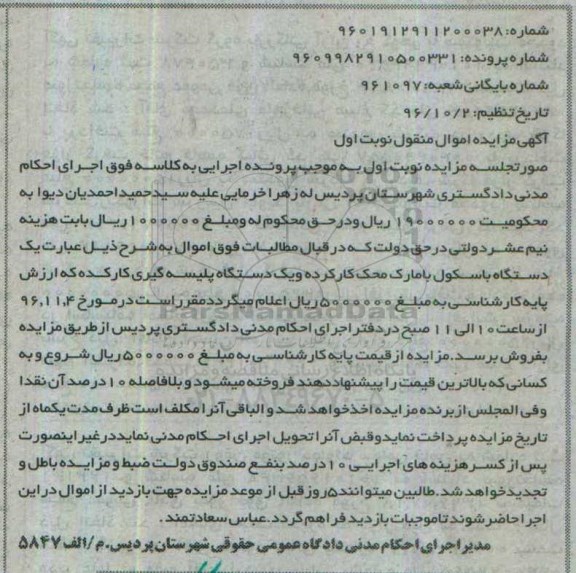 شماره: ۹۶۰۱۹۱۲۹۱۱۲۰۰۰۳۸
شماره پرونده: ۹۶۰۹۹۸۲۹۱۰۵۰۰۳۳۱
شماره بایگانی شعبه: ۹۶۱۰۹۷
تاریخ تنظیم: ۹۶/۱۰/۲
آگهی مزایده اموال منقول نوبت اول
صورتجلسه مزایده نوبت اول به موجب پرونده اجرایی به کلاسه فوق اجرای احکام
مدنی دادگستری شهرستان پردیس له زهرا خرمایی علیه سیدحمید احمدیان دیوا به
محکومیت ۱۹۰۰۰۰۰۰۰ ریال ودرحق محکوم له ومبلغ ۱۰۰۰۰۰۰ ریال بابت هزینه
نیم عشر دولتی در حق دولت که در قبال مطالبات فوق اموال به شرح ذیل عبارت یک
دستگاه باسکول بامارک محک کارکرده ویک دستگاه پلیسه گیری کارکده که ارزش
پایه کارشناسی به مبلغ ۵۰۰۰۰۰۰۰ ریال اعلام میگردد مقرر است در مورخ ۹۶،۱۱،۴
از ساعت ۱۰ الی ۱۱ صبح در دفتر اجرای احکام مدنی دادگستری پردیس از طریق مزایده
بفروش برسد. مزایده از قیمت پایه کارشناسی به مبلغ ۵۰۰۰۰۰۰۰ ریال شروع و به
کسانی که بالاترین قیمت را پیشنهاد دهند فروخته میشود و بلافاصله ۱۰ درصد آن نقدا
وفی المجلس از برنده مزایده اخذ خواهد شد و الباقی آنرا مکلف است ظرف مدت یکماه از
تاریخ مزایده پرداخت نماید وقبض آنرا تحویل اجرای احکام مدنی نماید در غیر اینصورت
پس از کسر هزینه های اجرایی ۱۰ درصد بنفع صندوق دولت ضبط و مزایده باطل و
تجدید خواهد شد. طالبین میتوانند ۵ روز قبل از موعد مزایده جهت بازدید از اموال در این
اجرا حاضر شوند تا موجبات بازدید فراهم گردد. عباس سعادتمند.
مدیر اجرای احکام مدنی دادگاه عمومی حقوقی شهرستان پردیس. م/الف ۵۸۴۷
ParsNamadData